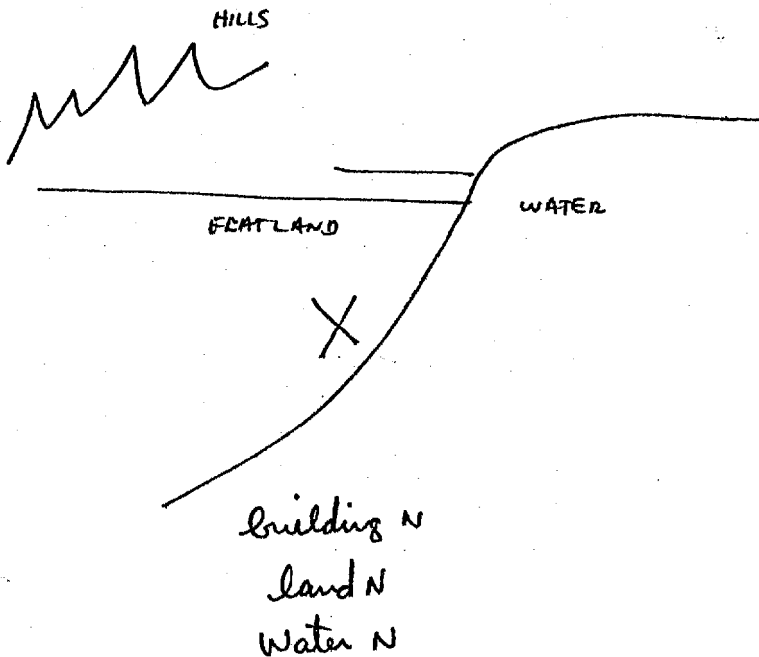 HILLS
FLATLAND
WATER
X
building N
land N
Water N